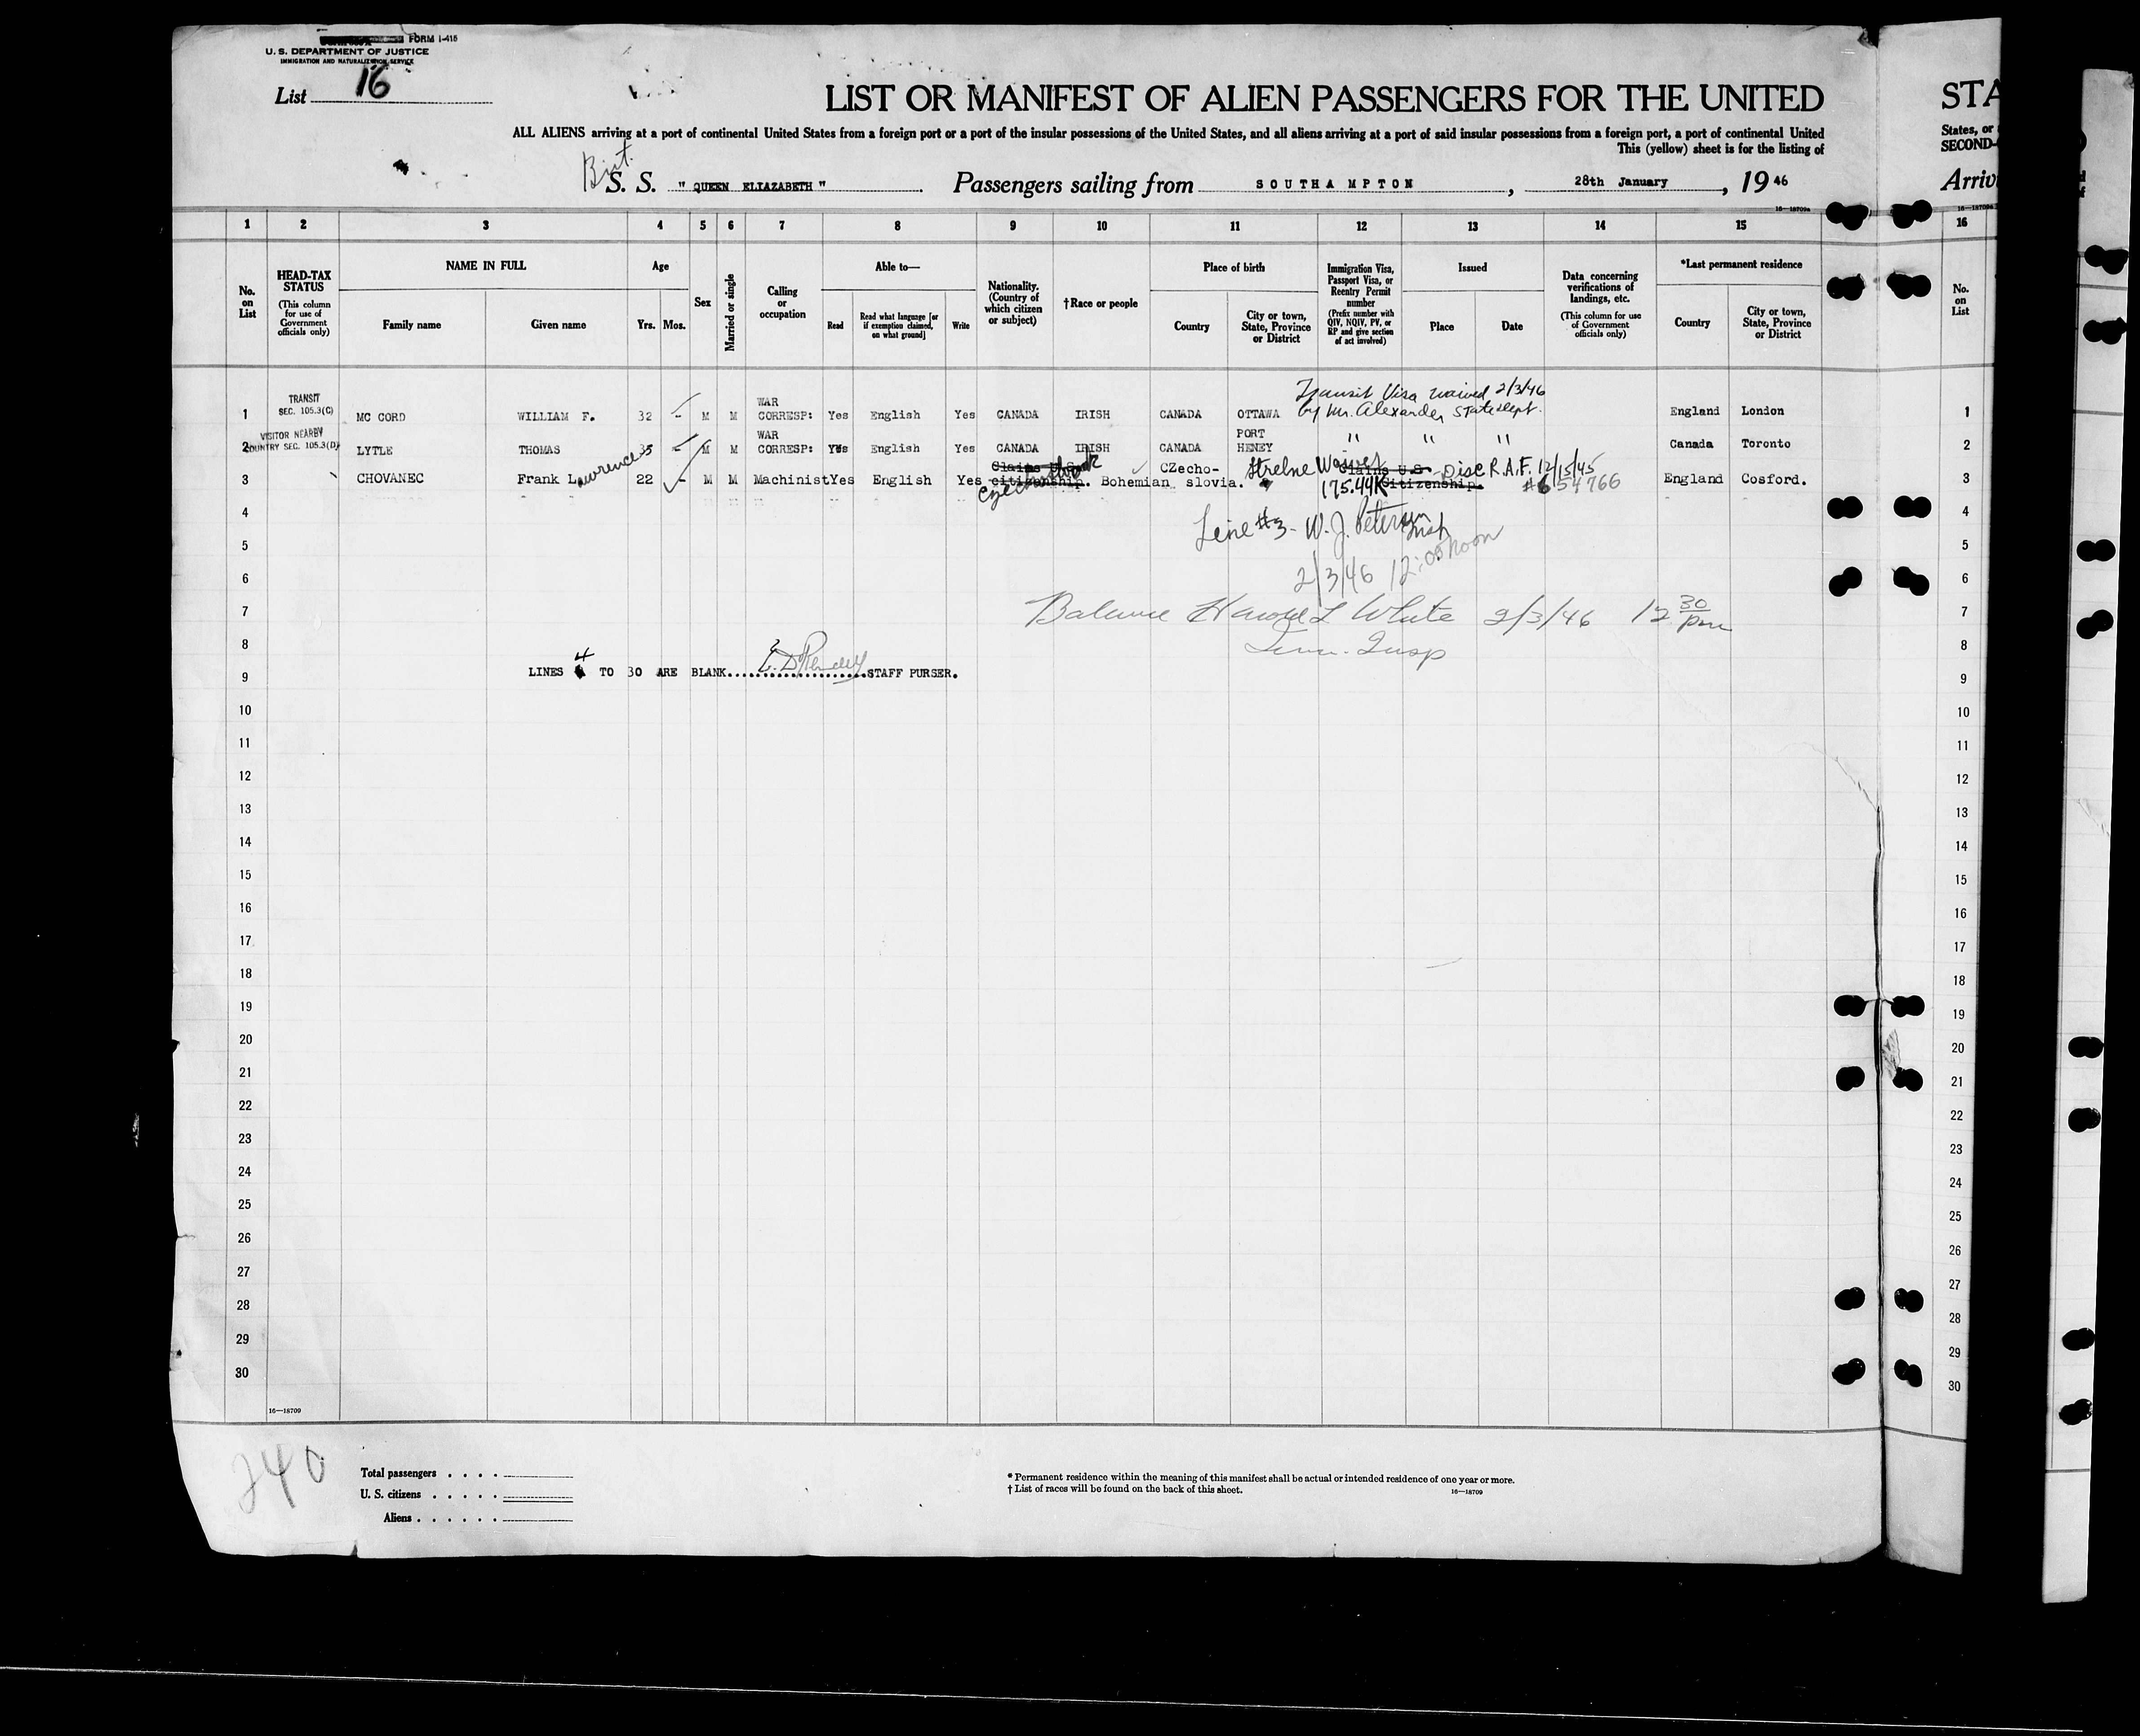 FORM I-415
U. S. DEPARTMENT OF JUSTICE
IMMIGRATION AND NATURALIZATION SERVICE
List 16
LIST OR MANIFEST OF ALIEN PASSENGERS FOR THE UNITED
STA
ALL ALIENS arriving at a port of continental United States from a foreign port or a port of the insular possessions of the United States, and all aliens arriving at a port of said insular possessions from a foreign port, a port of continental United
States, or
This (yellow) sheet is for the listing of
SECOND-
Brit.
S. S. " QUEEN ELIAZABETH " Passengers sailing from SOUTHAMPTON, 28th January, 19 46
Arriv
16—18709a
1 2 3 4 5 6 7 8 9 10 11 12 13 14 15 16
No. on List
HEAD-TAX STATUS (This column for use of Government officials only)
NAME IN FULL
Family name Given name
Age
Yrs. Mos.
Sex
Married or single
Calling or occupation
Able to—
Read Read what language [or if exemption claimed, on what ground] Write
Nationality. (Country of which citizen or subject)
†Race or people
Place of birth
Country City or town, State, Province or District
Immigration Visa, Passport Visa, or Reentry Permit number (Prefix number with QIV, NQIV, PV, or RP and give section of act involved)
Issued
Place Date
Data concerning verifications of landings, etc. (This column for use of Government officials only)
*Last permanent residence
Country City or town, State, Province or District
No. on List
Transit Visa waived 2/3/46
by Mr. Alexander State Dept.
TRANSIT SEC. 105.3(C)
1 MC CORD WILLIAM F. 32 - M M WAR CORRESP: Yes English Yes CANADA IRISH CANADA OTTAWA England London 1
VISITOR NEARBY COUNTRY SEC. 105.3(D)
2 LYTLE THOMAS 35 - M M WAR CORRESP: Yes English Yes CANADA IRISH CANADA PORT HENEY " " " Canada Toronto 2
3 CHOVANEC Frank Lawrence 22 - M M Machinist Yes English Yes Claims U.S. citizenship. Bohemian CZecho-slovia. Strelne Waiver 175.44K Claims U.S. Citizenship. Disc R.A.F. 12/15/45 #654766 England Cosford. 3
4 4
Line #3 - W. J. Peterson
5 Insp 5
6 2/3/46 12:00 noon 6
7 Balance Harold L White 2/3/46 12 30 pm 7
8 Imm. Insp 8
LINES 4 TO 30 ARE BLANK STAFF PURSER.
9 9
10 10
11 11
12 12
13 13
14 14
15 15
16 16
17 17
18 18
19 19
20 20
21 21
22 22
23 23
24 24
25 25
26 26
27 27
28 28
29 29
30 30
16—18709
240
Total passengers . . . .
U. S. citizens . . . . .
Aliens . . . . . .
* Permanent residence within the meaning of this manifest shall be actual or intended residence of one year or more.
† List of races will be found on the back of this sheet.
16—18709